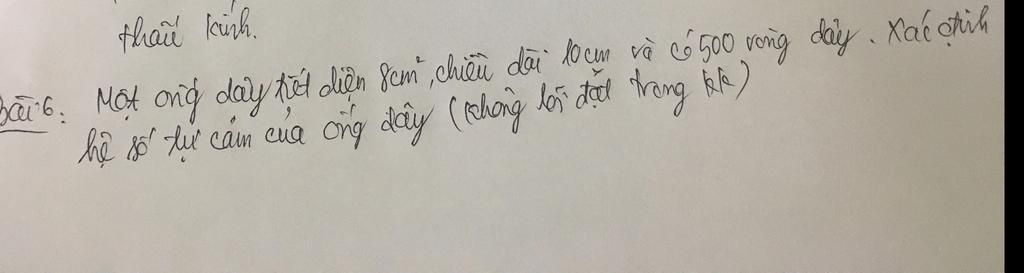 thấu kính.
Bài 6: Một ống dây tiết diện 8cm², chiều dài 10cm và có 500 vòng dây. Xác định
hệ số tự cảm của ống dây (không lõi đặt trong kk)